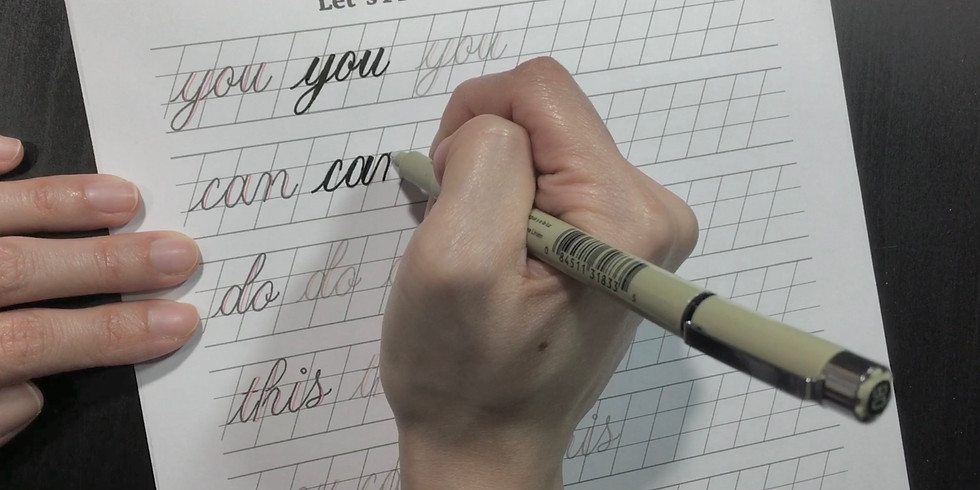 Let's
you you you
can can
do do
this
0 84511 31833 5